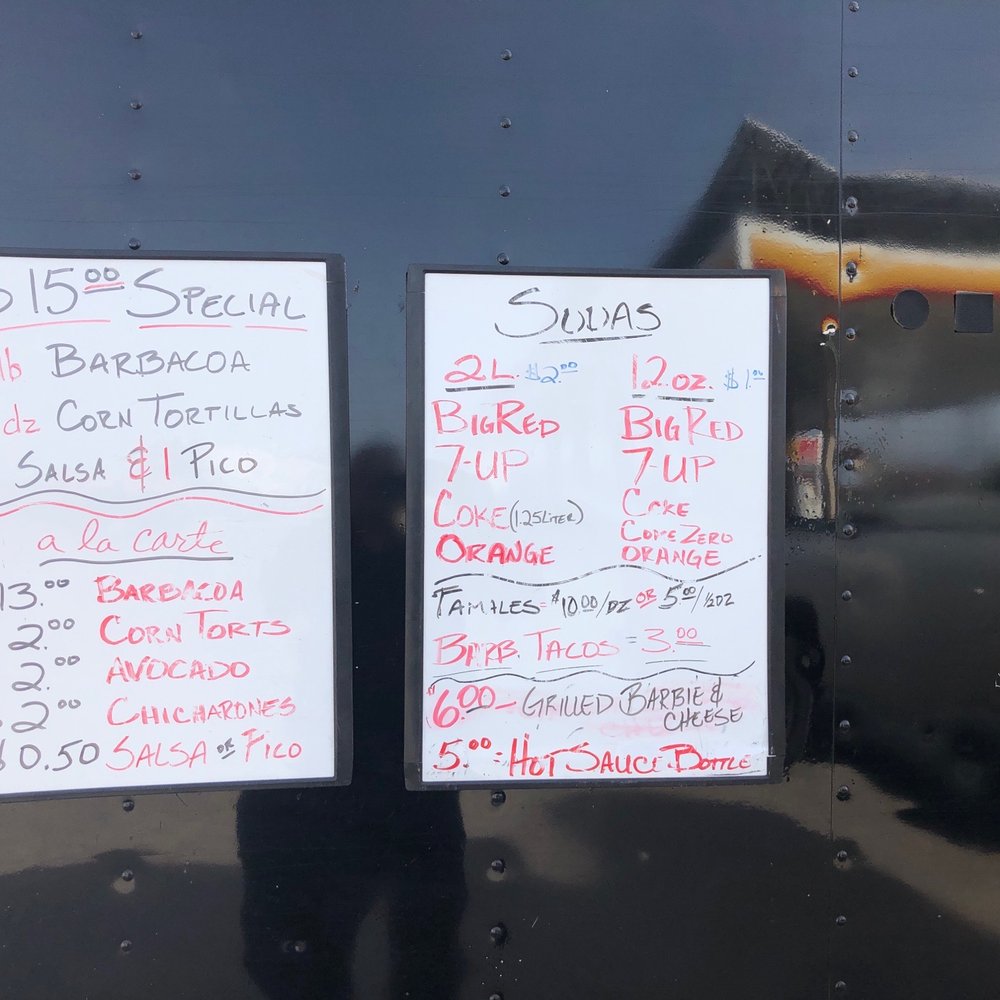 $15.00 SPECIAL
lb BARBACOA
dz CORN TORTILLAS
SALSA & 1 PICO
a la carte
13.00 BARBACOA
2.00 CORN TORTS
2.00 AVOCADO
$2.00 CHICHARONES
$0.50 SALSA OR PICO
SODAS
2L. $2.00 12 oz. $1.00
BIG RED BIG RED
7-UP 7-UP
COKE (1.25 LITER) COKE
ORANGE COKE ZERO
ORANGE
TAMALES = $10.00/DZ OR 5.00/½DZ
BARB. TACOS = 3.00
$6.00 - GRILLED BARBIE &
CHEESE
5.00 = HOT SAUCE BOTTLE